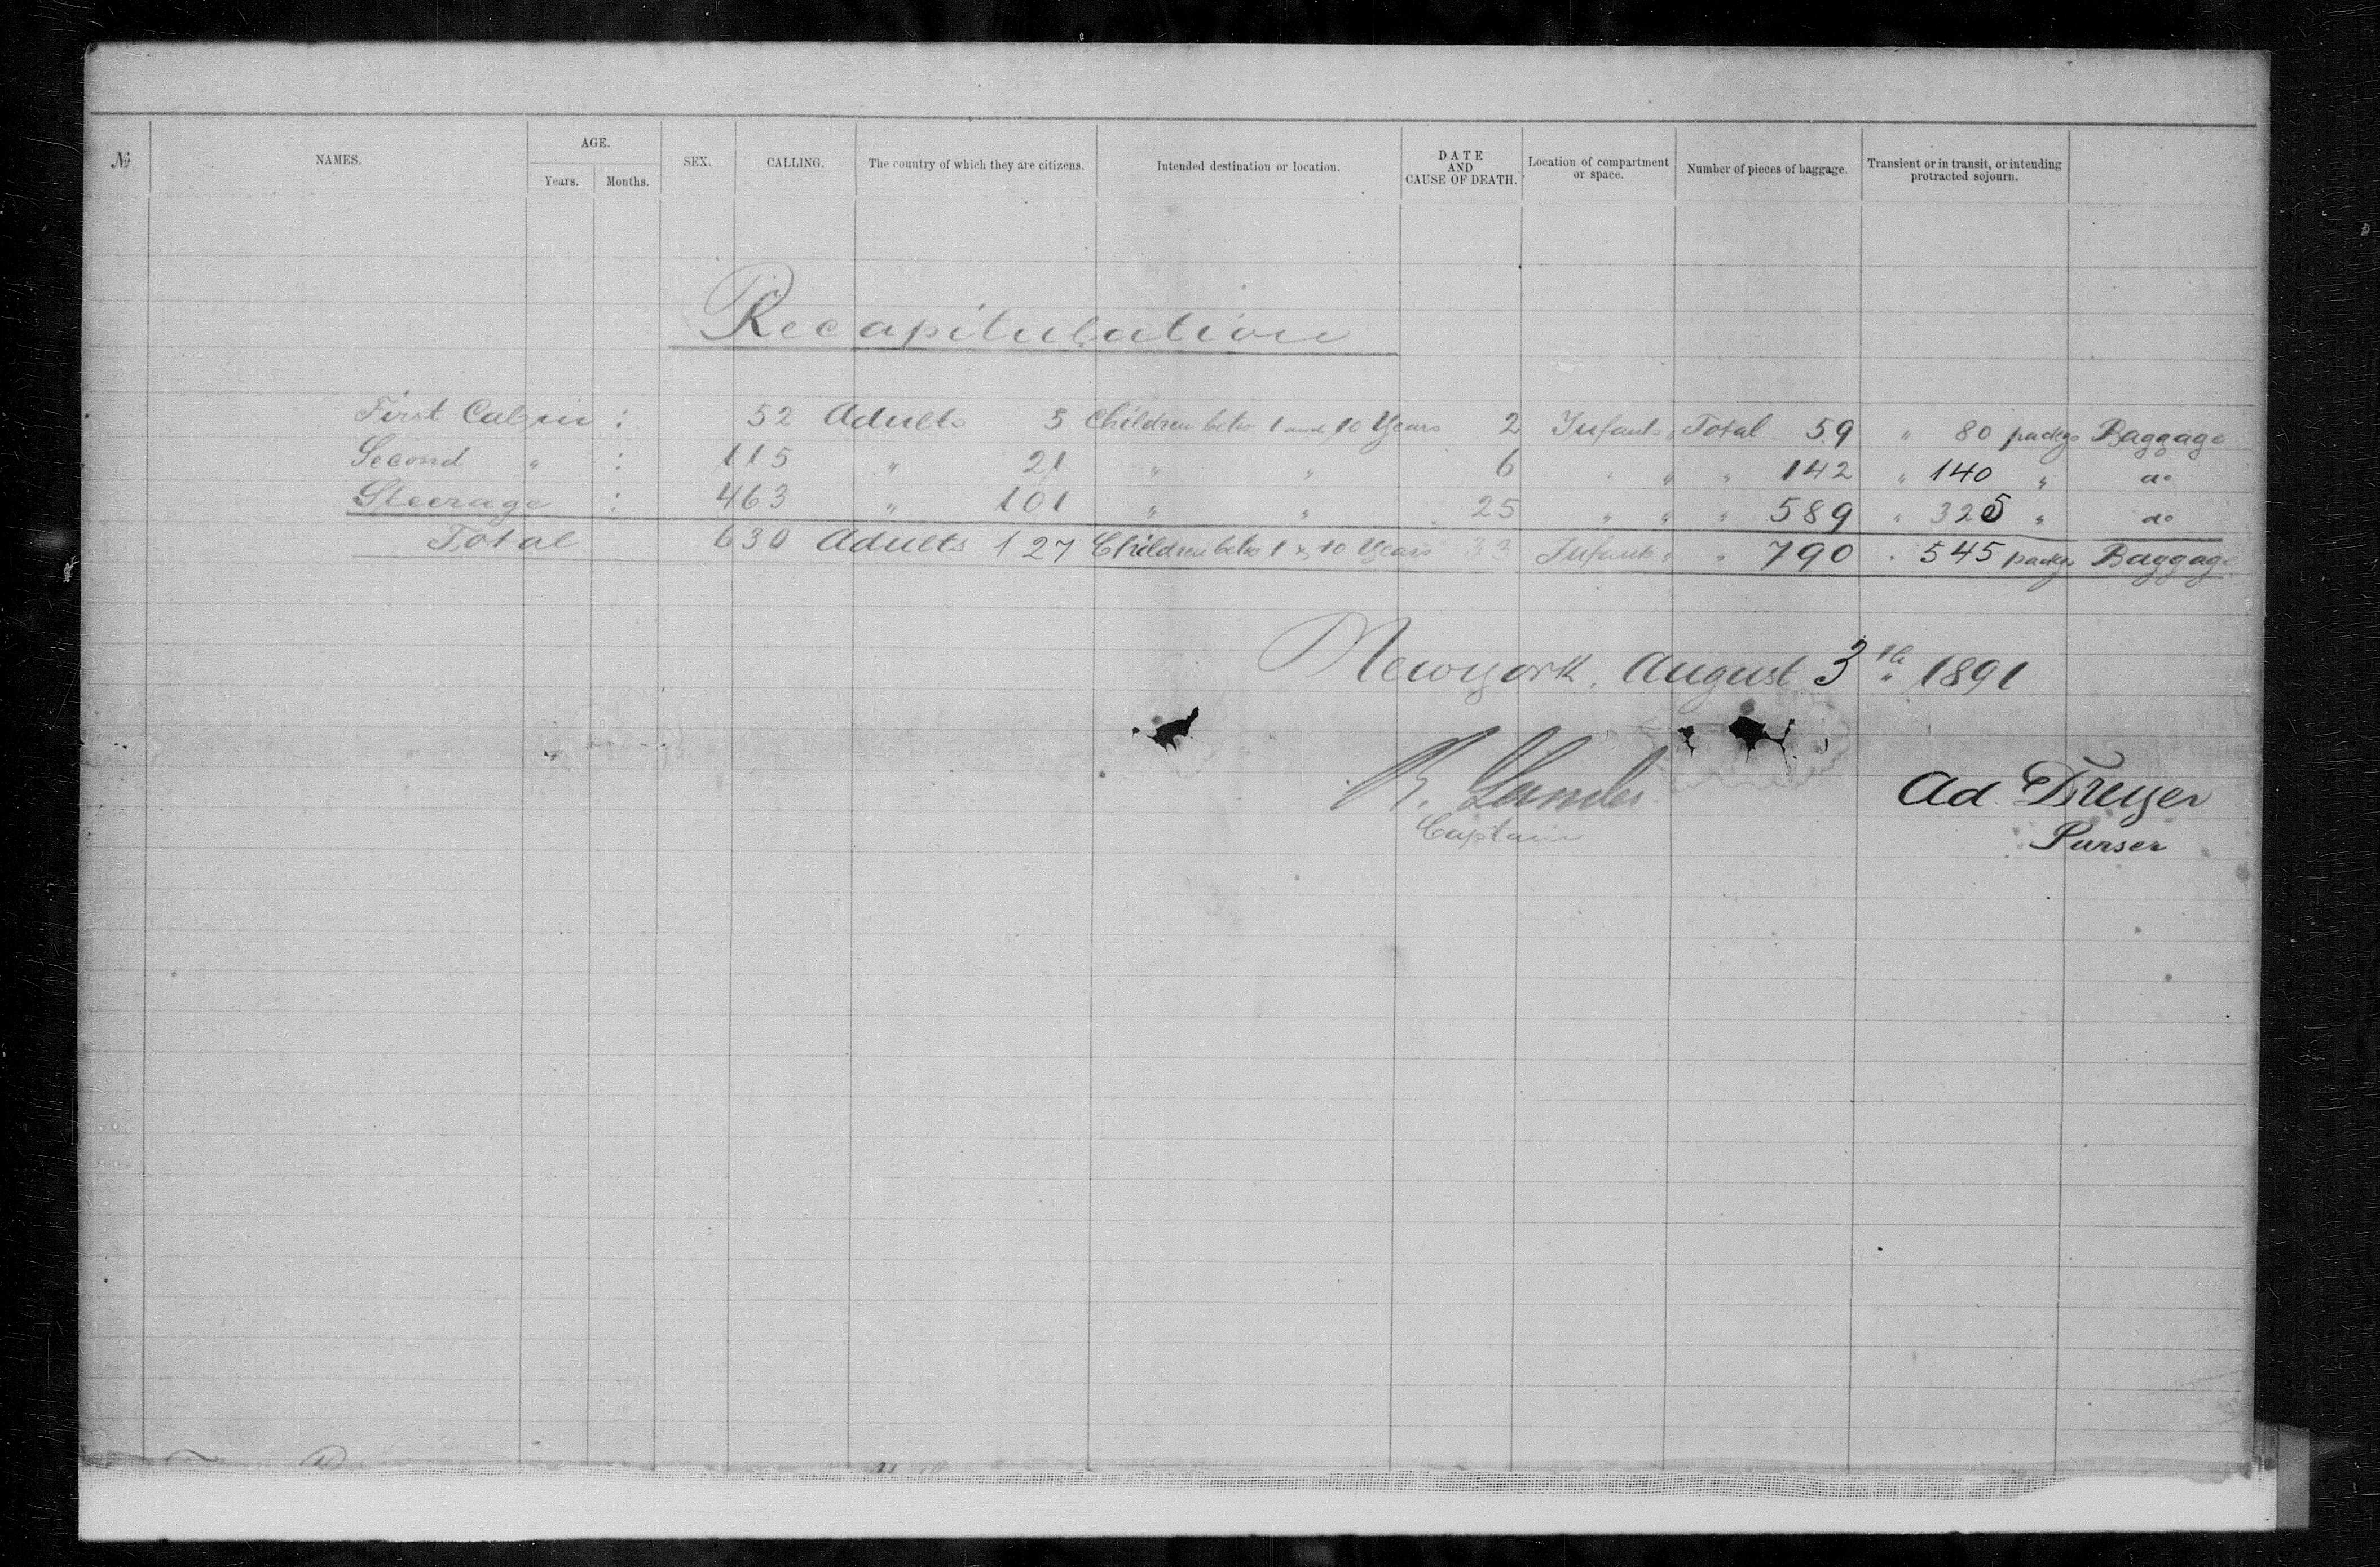 № NAMES. AGE. Years. Months. SEX. CALLING. The country of which they are citizens. Intended destination or location. DATE AND CAUSE OF DEATH. Location of compartment or space. Number of pieces of baggage. Transient or in transit, or intending protracted sojourn.
Recapitulation
First Cabin : 52 Adults 5 Children betw 1 and 10 Years 2 Infants " Total 59 " 80 packgs Baggage
Second " : 115 " 21 " " 6 " " " 142 " 140 " do
Steerage : 463 " 101 " " 25 " " " 589 " 325 " do
Total 630 Adults 127 Children betw 1 & 10 Years 33 Infants " " 790 " 545 packgs Baggage
Newyork, August 3th 1891
R. Sander
Captain
Ad. Dreyer
Purser